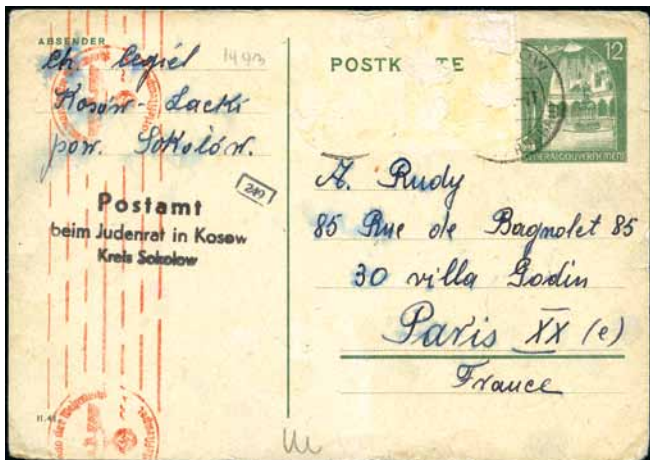 ABSENDER
Ch. Cegiel
1493
Kosów-Lacki
pow. Sokolów.
249
Postamt
beim Judenrat in Kosow
Kreis Sokolow
II.41
POSTK TE
12
GENERALGOUVERNEMENT
A. Rudy
85 Rue de Bagnolet 85
30 villa Godin
Paris XX (e)
France